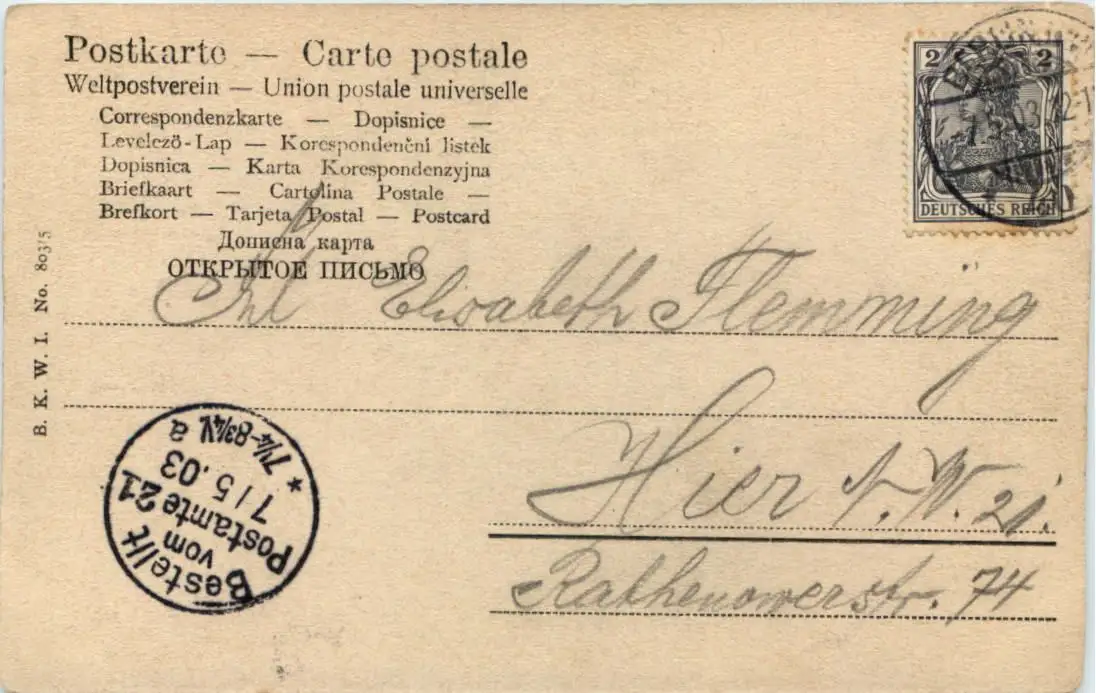 Postkarte — Carte postale
Weltpostverein — Union postale universelle
Correspondenzkarte — Dopisnice —
Levelező-Lap — Korespondenční listek
Dopisnica — Karta Korespondenzyjna
Briefkaart — Cartolina Postale —
Brefkort — Tarjeta Postal — Postcard
Дописна карта
ОТКРЫТОЕ ПИСЬМО
2 2
DEUTSCHES REICH
BERLIN
7.5.03 12-1
Frl Elisabeth Flemming
Hier N.W. 21.
Rathenowerstr. 74
B. K. W. I. No. 803/5
Bestellt
vom
Postamte 21
7/5.03
* 7¼-8¾V. a